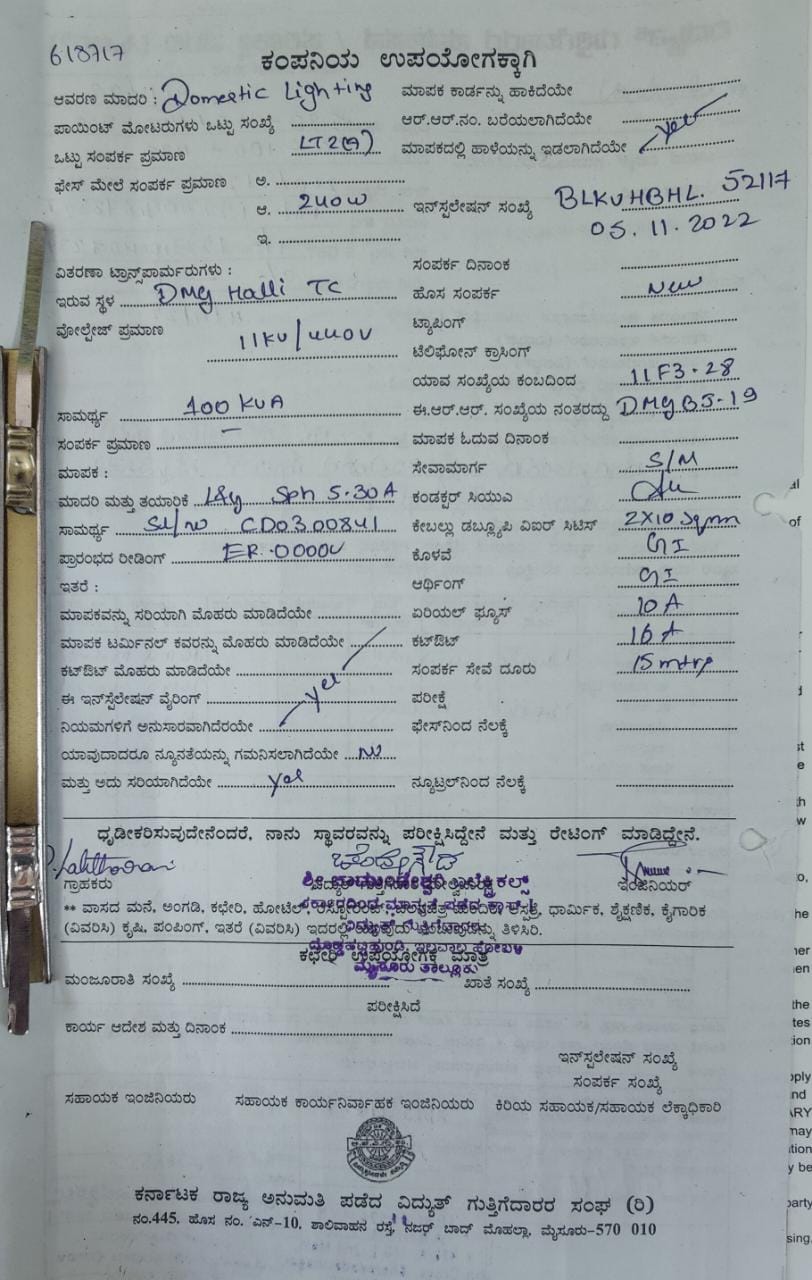 618717
ಕಂಪನಿಯ ಉಪಯೋಗಕ್ಕಾಗಿ
ಆವರಣ ಮಾದರಿ : Domestic Lighting ಮಾಪಕ ಕಾರ್ಡನ್ನು ಹಾಕಿದೆಯೇ
ಪಾಯಿಂಟ್ ಮೋಟರುಗಳು ಒಟ್ಟು ಸಂಖ್ಯೆ ಆರ್.ಆರ್.ನಂ. ಬರೆಯಲಾಗಿದೆಯೇ
ಒಟ್ಟು ಸಂಪರ್ಕ ಪ್ರಮಾಣ ಮಾಪಕದಲ್ಲಿ ಹಾಳೆಯನ್ನು ಇಡಲಾಗಿದೆಯೇ yes
ಫೇಸ್ ಮೇಲೆ ಸಂಪರ್ಕ ಪ್ರಮಾಣ ಅ.
ಆ. 240W ಇನ್‌ಸ್ಪಲೇಷನ್ ಸಂಖ್ಯೆ BLKVHBHL. 52117
ಇ. 05.11.2022
ವಿತರಣಾ ಟ್ರಾನ್ಸ್‌ಪಾರ್ಮರುಗಳು : ಸಂಪರ್ಕ ದಿನಾಂಕ
ಇರುವ ಸ್ಥಳ DMG Halli TC ಹೊಸ ಸಂಪರ್ಕ New
ವೋಲ್ಟೇಜ್ ಪ್ರಮಾಣ 11KV/440V ಟ್ಯಾಪಿಂಗ್
ಟೆಲಿಫೋನ್ ಕ್ರಾಸಿಂಗ್
ಯಾವ ಸಂಖ್ಯೆಯ ಕಂಬದಿಂದ 11F3-28
ಸಾಮರ್ಥ್ಯ 100 KVA ಈ.ಆರ್.ಆರ್. ಸಂಖ್ಯೆಯ ನಂತರದ್ದು DMGBJ-19
ಸಂಪರ್ಕ ಪ್ರಮಾಣ – ಮಾಪಕ ಓದುವ ದಿನಾಂಕ
ಮಾಪಕ : ಸೇವಾಮಾರ್ಗ S/M
ಮಾದರಿ ಮತ್ತು ತಯಾರಿಕೆ 5-30A ಕಂಡಕ್ಟರ್ ಸಿಯುಎ
ಸಾಮರ್ಥ್ಯ Sl/no CD0300841 ಕೇಬಲ್ಲು ಡಬ್ಲ್ಯೂಪಿ ಎಐರ್ ಸಿಟಿಸ್ 2X10 Sqmm
ಪ್ರಾರಂಭದ ರೀಡಿಂಗ್ ಕೊಳವೆ GI
ಇತರೆ : ಆರ್ಥಿಂಗ್ GI
ಮಾಪಕವನ್ನು ಸರಿಯಾಗಿ ಮೊಹರು ಮಾಡಿದೆಯೇ ಏರಿಯಲ್ ಫ್ಯೂಸ್ 10A
ಮಾಪಕ ಟರ್ಮಿನಲ್ ಕವರನ್ನು ಮೊಹರು ಮಾಡಿದೆಯೇ ಕಟ್‌ಔಟ್ 16A
ಕಟ್‌ಔಟ್ ಮೊಹರು ಮಾಡಿದೆಯೇ ಸಂಪರ್ಕ ಸೇವೆ ದೂರು 15 mtrs
ಈ ಇನ್‌ಸ್ಪೆಲೇಷನ್ ವೈರಿಂಗ್ yes ಪರೀಕ್ಷೆ
ನಿಯಮಗಳಿಗೆ ಅನುಸಾರವಾಗಿದೆರಯೇ ಫೇಸ್‌ನಿಂದ ನೆಲಕ್ಕೆ
ಯಾವುದಾದರೂ ನ್ಯೂನತೆಯನ್ನು ಗಮನಿಸಲಾಗಿದೆಯೇ No
ಮತ್ತು ಅದು ಸರಿಯಾಗಿದೆಯೇ yes ನ್ಯೂಟ್ರಲ್‌ನಿಂದ ನೆಲಕ್ಕೆ
ಧೃಡೀಕರಿಸುವುದೇನೆಂದರೆ, ನಾನು ಸ್ಥಾವರವನ್ನು ಪರೀಕ್ಷಿಸಿದ್ದೇನೆ ಮತ್ತು ರೇಟಿಂಗ್ ಮಾಡಿದ್ದೇನೆ.
ಗ್ರಾಹಕರು ಇಂಜಿನಿಯರ್
** ವಾಸದ ಮನೆ, ಅಂಗಡಿ, ಕಛೇರಿ, ಹೋಟೆಲ್, ಧಾರ್ಮಿಕ, ಶೈಕ್ಷಣಿಕ, ಕೈಗಾರಿಕ
(ವಿವರಿಸಿ) ಕೃಷಿ, ಪಂಪಿಂಗ್, ಇತರೆ (ವಿವರಿಸಿ) ಇದರಲ್ಲಿ ತಿಳಿಸಿರಿ.
ಕಛೇರಿ ಉಪಯೋಗಕ್ಕೆ ಮಾತ್ರ
ಮೈಸೂರು ತಾಲ್ಲೂಕು
ಮಂಜೂರಾತಿ ಸಂಖ್ಯೆ ಖಾತೆ ಸಂಖ್ಯೆ
ಪರೀಕ್ಷಿಸಿದೆ
ಕಾರ್ಯ ಆದೇಶ ಮತ್ತು ದಿನಾಂಕ
ಇನ್‌ಸ್ಪಲೇಷನ್ ಸಂಖ್ಯೆ
ಸಂಪರ್ಕ ಸಂಖ್ಯೆ
ಸಹಾಯಕ ಇಂಜಿನಿಯರು ಸಹಾಯಕ ಕಾರ್ಯನಿರ್ವಾಹಕ ಇಂಜಿನಿಯರು ಕಿರಿಯ ಸಹಾಯಕ/ಸಹಾಯಕ ಲೆಕ್ಕಾಧಿಕಾರಿ
ಕರ್ನಾಟಕ ರಾಜ್ಯ ಅನುಮತಿ ಪಡೆದ ವಿದ್ಯುತ್ ಗುತ್ತಿಗೆದಾರರ ಸಂಘ (ರಿ)
ನಂ.445, ಹೊಸ ನಂ. ಎನ್-10, ಶಾಲಿವಾಹನ ರಸ್ತೆ, ನಜರ್ ಬಾದ್ ಮೊಹಲ್ಲಾ, ಮೈಸೂರು-570 010